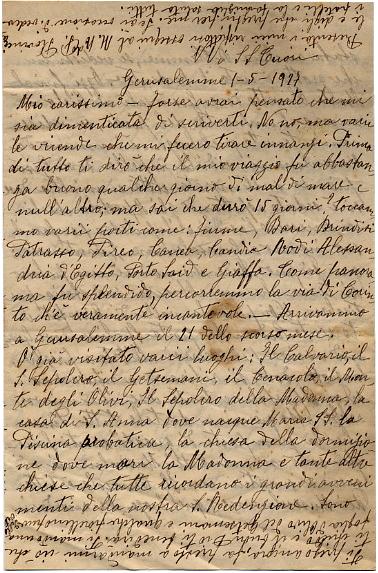 V. i SS. Cuori
Gerusalemme 1-5-1927
Mio carissimo - forse avrai pensato che mi
sia dimenticata di scriverti. No no, ma varie
le vicende che mi fecero tirare innanzi. Prima
di tutto ti dirò che il mio viaggio fu abbastan
za buono qualche giorno di mal di mare e
null'altro; ma sai che durò 15 giorni? toccam
mo varii porti come: fiume, Bari, Brindisi
Patrasso, Pireo, Canea, Candia Rodi Alessan
dria d'Egitto, Porto Said e Giaffa. Come panora
ma fu splendido, percorremmo la via di Corin
to ch'è veramente incantevole. - Arrivammo
a Gerusalemme il 21 dello scorso mese.
O già visitato varii luoghi: Il Calvario, il
S. Sepolcro, il Getsemani, il Cenacolo, il Mon
te degli Olivi, Il Sepolcro della Madonna, la
casa di S. Anna dove nacque Maria SS. la
Piscina probatica, la chiesa della dormizio
ne dove morì la Madonna e tante altre
chiese che tutte ricordano i grandi avveni
menti della nostra S. Redenzione. Sono